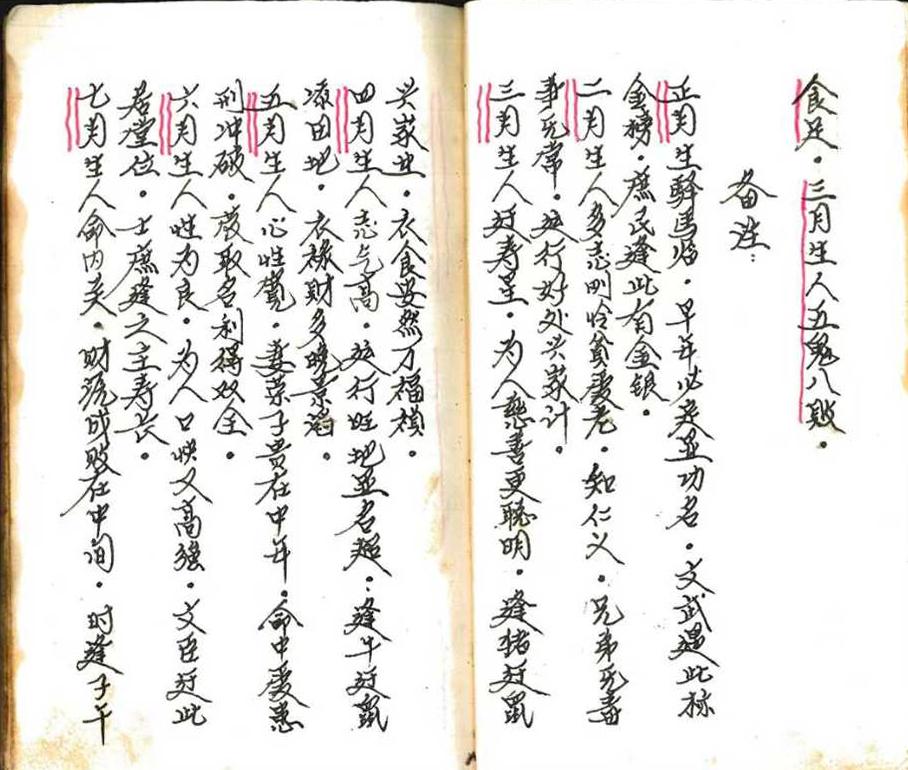 食足。三月生人五鬼八败。
备注：
正月生驿马临。早年必定显功名。文武遇此标
金榜。庶民逢此有金银。
二月生人多志刚怜贫爱老。知仁义。兄弟无毒
事无常。运行好处兴家计。
三月生人廷寿星。为人慈善更聪明。逢猪廷鼠
兴家业。衣食安然万福祯。
四月生人志气高。运行旺地显名超：逢牛廷鼠
添田地。衣禄财多晚景滔。
五月生人心性宽。妻荣子贵在中年。命中爱恶
刑冲破。发取名利得双全。
六月生人性为良。为人口快又高强。文臣廷此
居堂位。士庶逢之主寿长。
七月生人命内夹。财源成败在中间。时逢子午